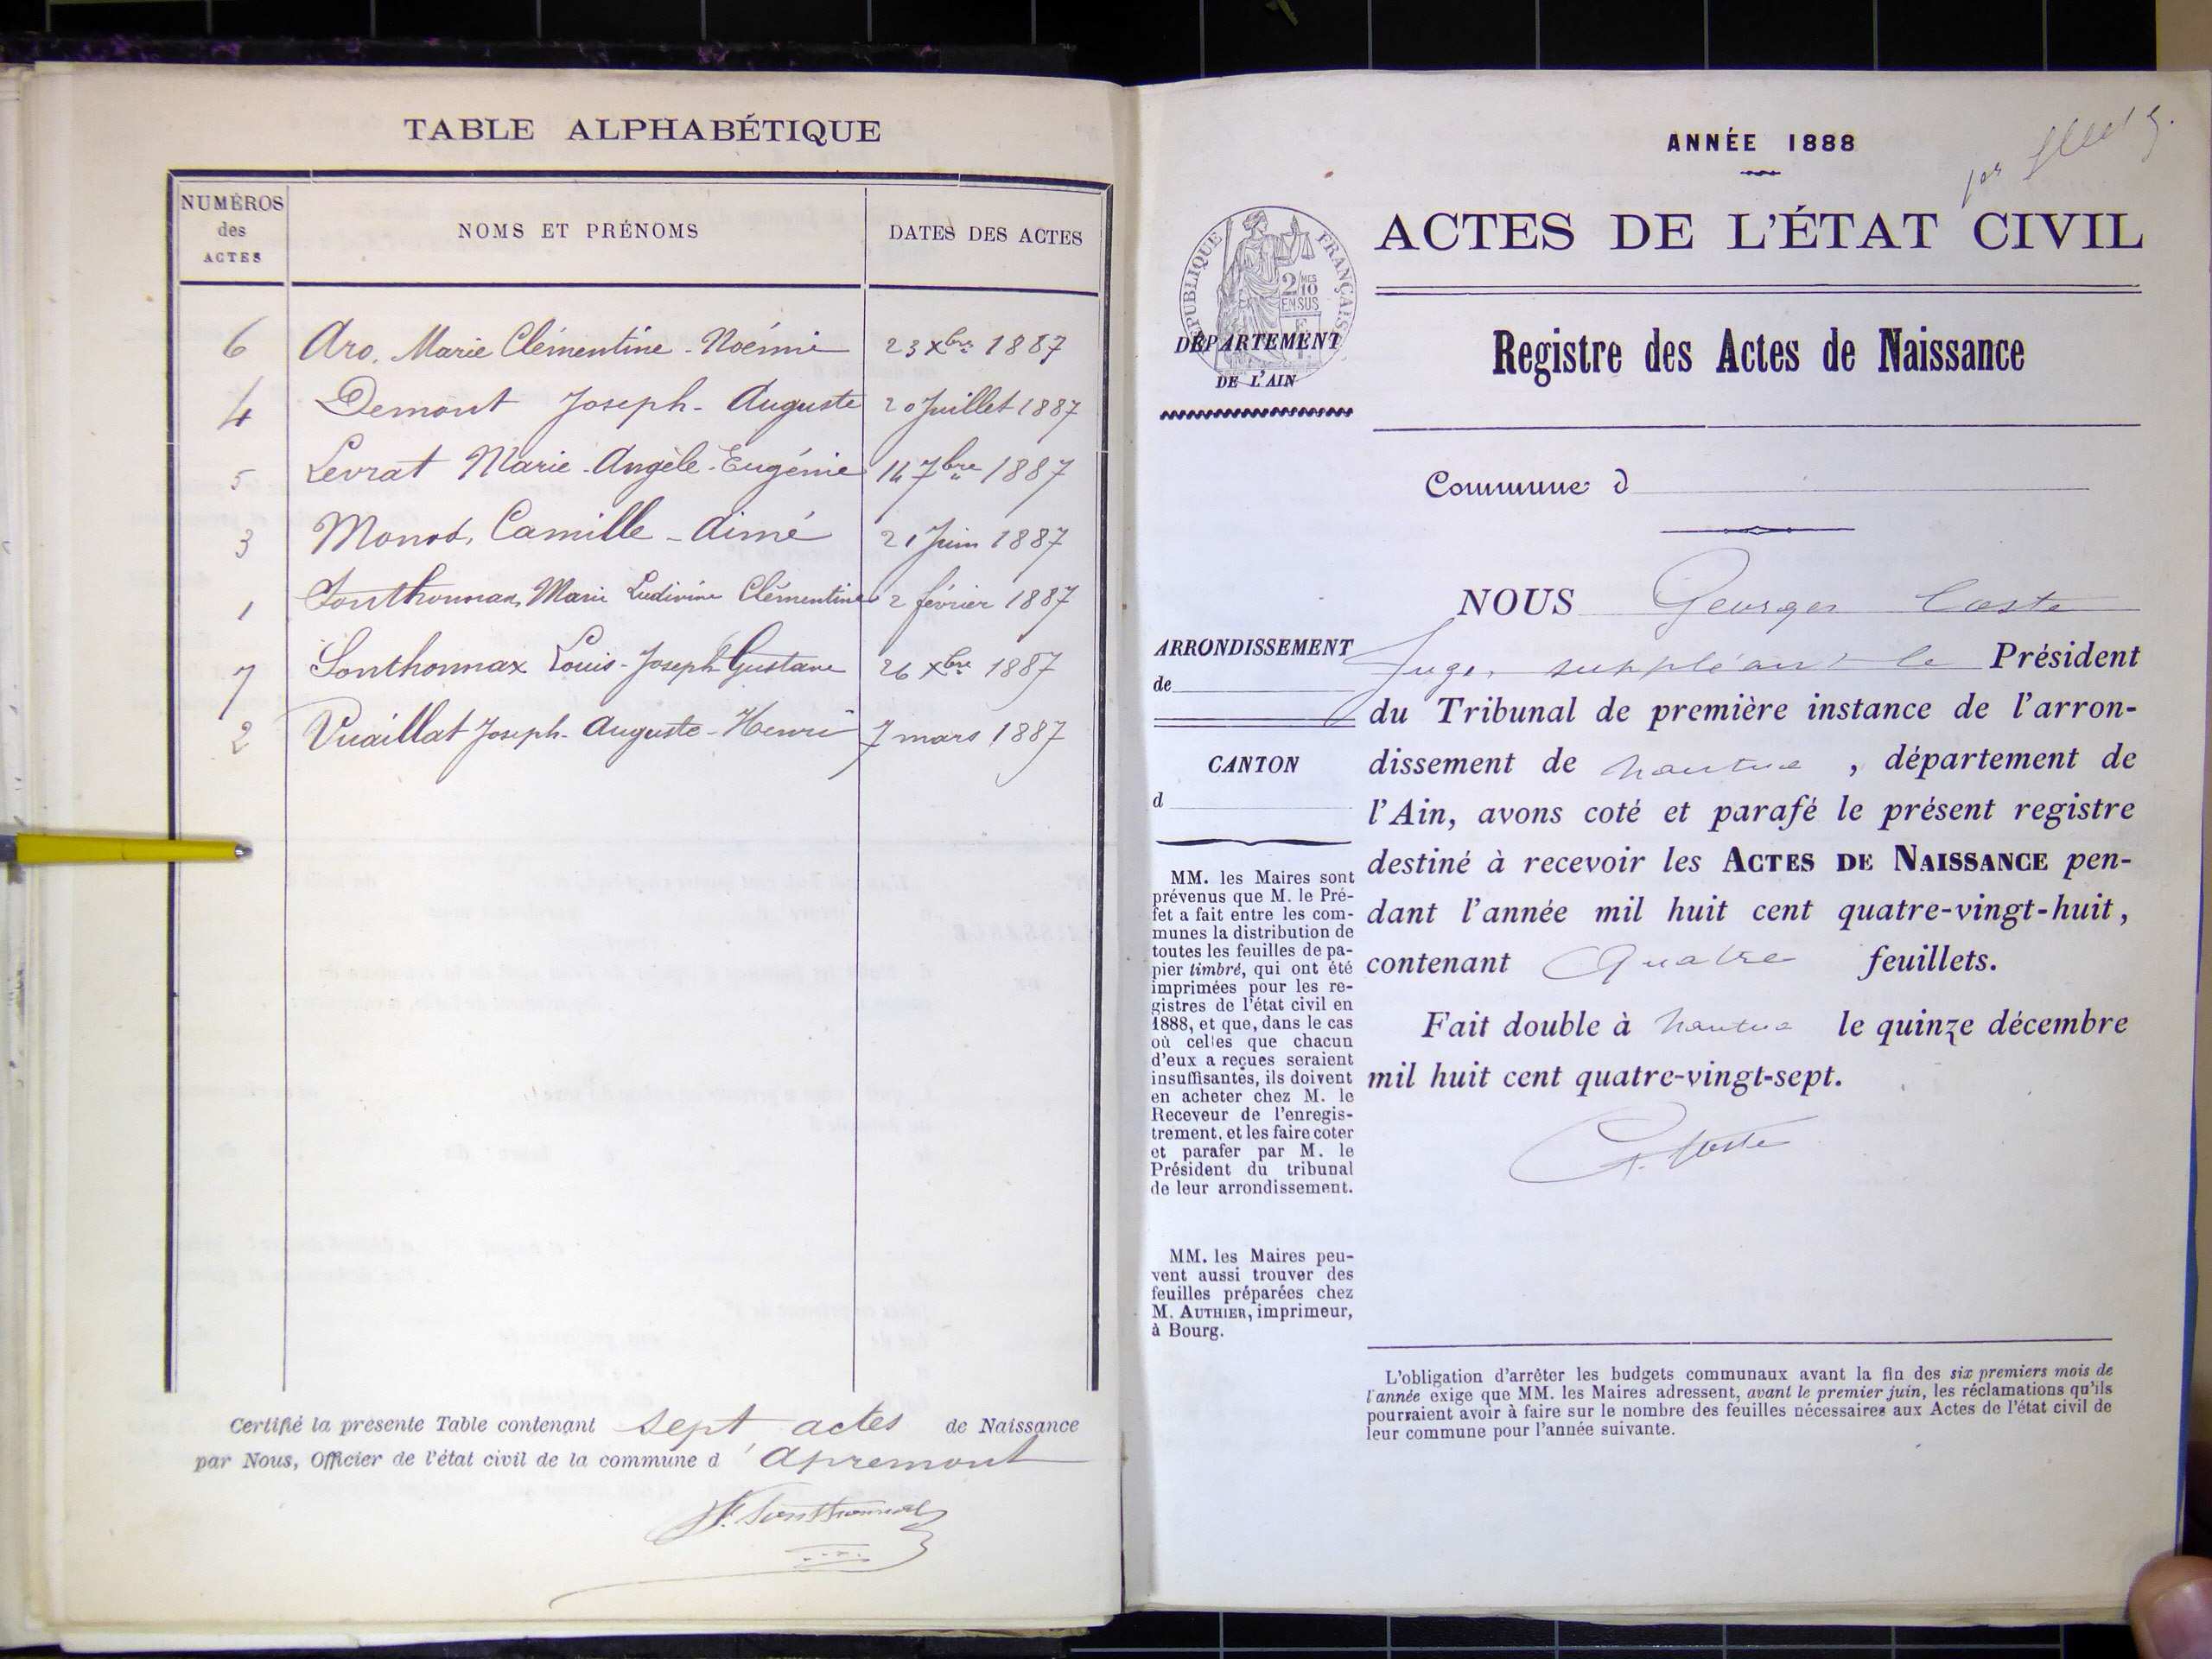 TABLE ALPHABÉTIQUE
NUMÉROS des ACTES NOMS ET PRÉNOMS DATES DES ACTES
6 Aro, Marie Clémentine - Noémie 23 Xbre 1887
4 Demont Joseph - Auguste 20 Juillet 1887
5 Levrat Marie - Angèle - Eugénie 14 7bre 1887
3 Monod, Camille - Aimé 21 Juin 1887
1 Sonthonnax, Marie Ludivine Clémentine 2 février 1887
7 Sonthonnax Louis - Joseph Gustave 26 Xbre 1887
2 Vuaillat Joseph - Auguste - Henri 7 mars 1887
Certifié la présente Table contenant sept actes de Naissance
par Nous, Officier de l'état civil de la commune d'Apremont
Sonthonnax
ANNÉE 1888
1er
ACTES DE L'ÉTAT CIVIL
RÉPUBLIQUE FRANÇAISE
2/10 MES
EN SUS
DÉPARTEMENT
DE L'AIN
Registre des Actes de Naissance
Commune d
ARRONDISSEMENT
de
CANTON
d
MM. les Maires sont
prévenus que M. le Pré-
fet a fait entre les com-
munes la distribution de
toutes les feuilles de pa-
pier timbré, qui ont été
imprimées pour les re-
gistres de l'état civil en
1888, et que, dans le cas
où celles que chacun
d'eux a reçues seraient
insuffisantes, ils doivent
en acheter chez M. le
Receveur de l'enregis-
trement, et les faire coter
et parafer par M. le
Président du tribunal
de leur arrondissement.
MM. les Maires peu-
vent aussi trouver des
feuilles préparées chez
M. AUTHIER, imprimeur,
à Bourg.
NOUS Georges Coste
Juge suppléant le Président
du Tribunal de première instance de l'arron-
dissement de Nantua, département de
l'Ain, avons coté et parafé le présent registre
destiné à recevoir les ACTES DE NAISSANCE pen-
dant l'année mil huit cent quatre-vingt-huit,
contenant Quatre feuillets.
Fait double à Nantua le quinze décembre
mil huit cent quatre-vingt-sept.
G. Coste
L'obligation d'arrêter les budgets communaux avant la fin des six premiers mois de
l'année exige que MM. les Maires adressent, avant le premier juin, les réclamations qu'ils
pourraient avoir à faire sur le nombre des feuilles nécessaires aux Actes de l'état civil de
leur commune pour l'année suivante.